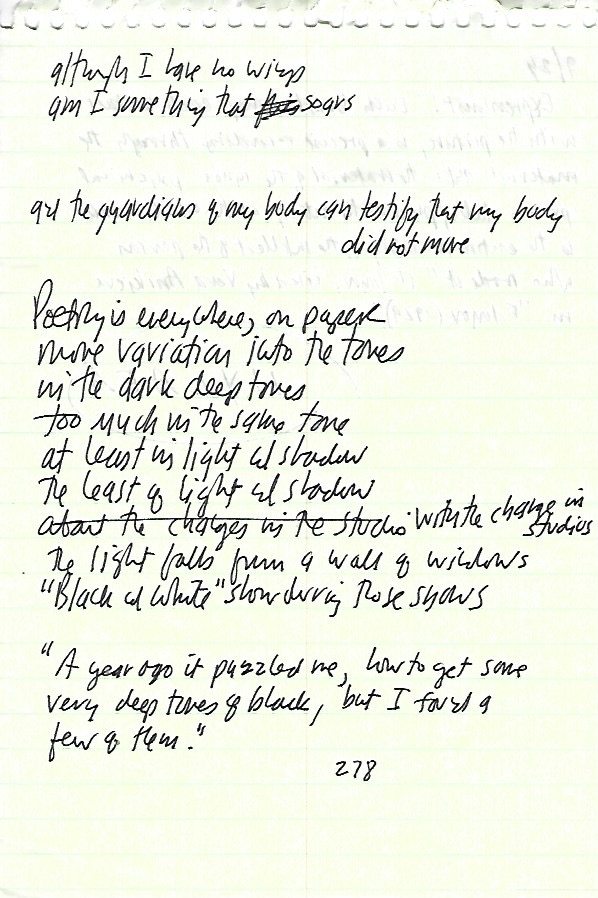 although I have no wings
am I something that soars
and the guardians of my body can testify that my body
did not move
Poetry is everywhere, on paper
more variation into the tones
in the dark deep tones
too much in the same tone
at least in light and shadow
the least of light and shadow
about the changes in the studio with the change in
studios
the light falls from a wall of windows
"Black and White" show during those shows
"A year ago it puzzled me, how to get some
very deep tones of black, but I found a
few of them."
278